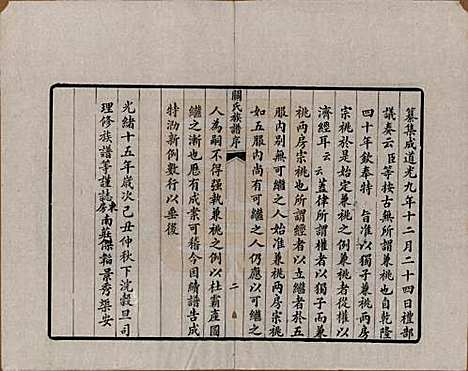 纂集成道光九年十二月二十四日禮部
議奏云臣等按古無所謂兼祧也自乾隆
四十年欽奉特旨准以獨子兼祧兩房
宗祧於是始定兼祧之例兼祧從權以
濟經耳云云蓋律所謂權者以獨子而兼
祧兩房宗祧也所謂經者以立繼者於五
服內別無可繼之人始准兼祧兩房宗祧
如五服內尚有可繼之人仍應以可繼之
關氏族譜序
二
人為嗣不得强執兼祧之例以杜霸產圖
繼之漸也應有成業可稽今因續譜告成
特泐新例數行以垂後
光緒十五年歲次己丑仲秋下浣穀旦司
理修族譜等謹誌東房南莊傑韜景秀榘安